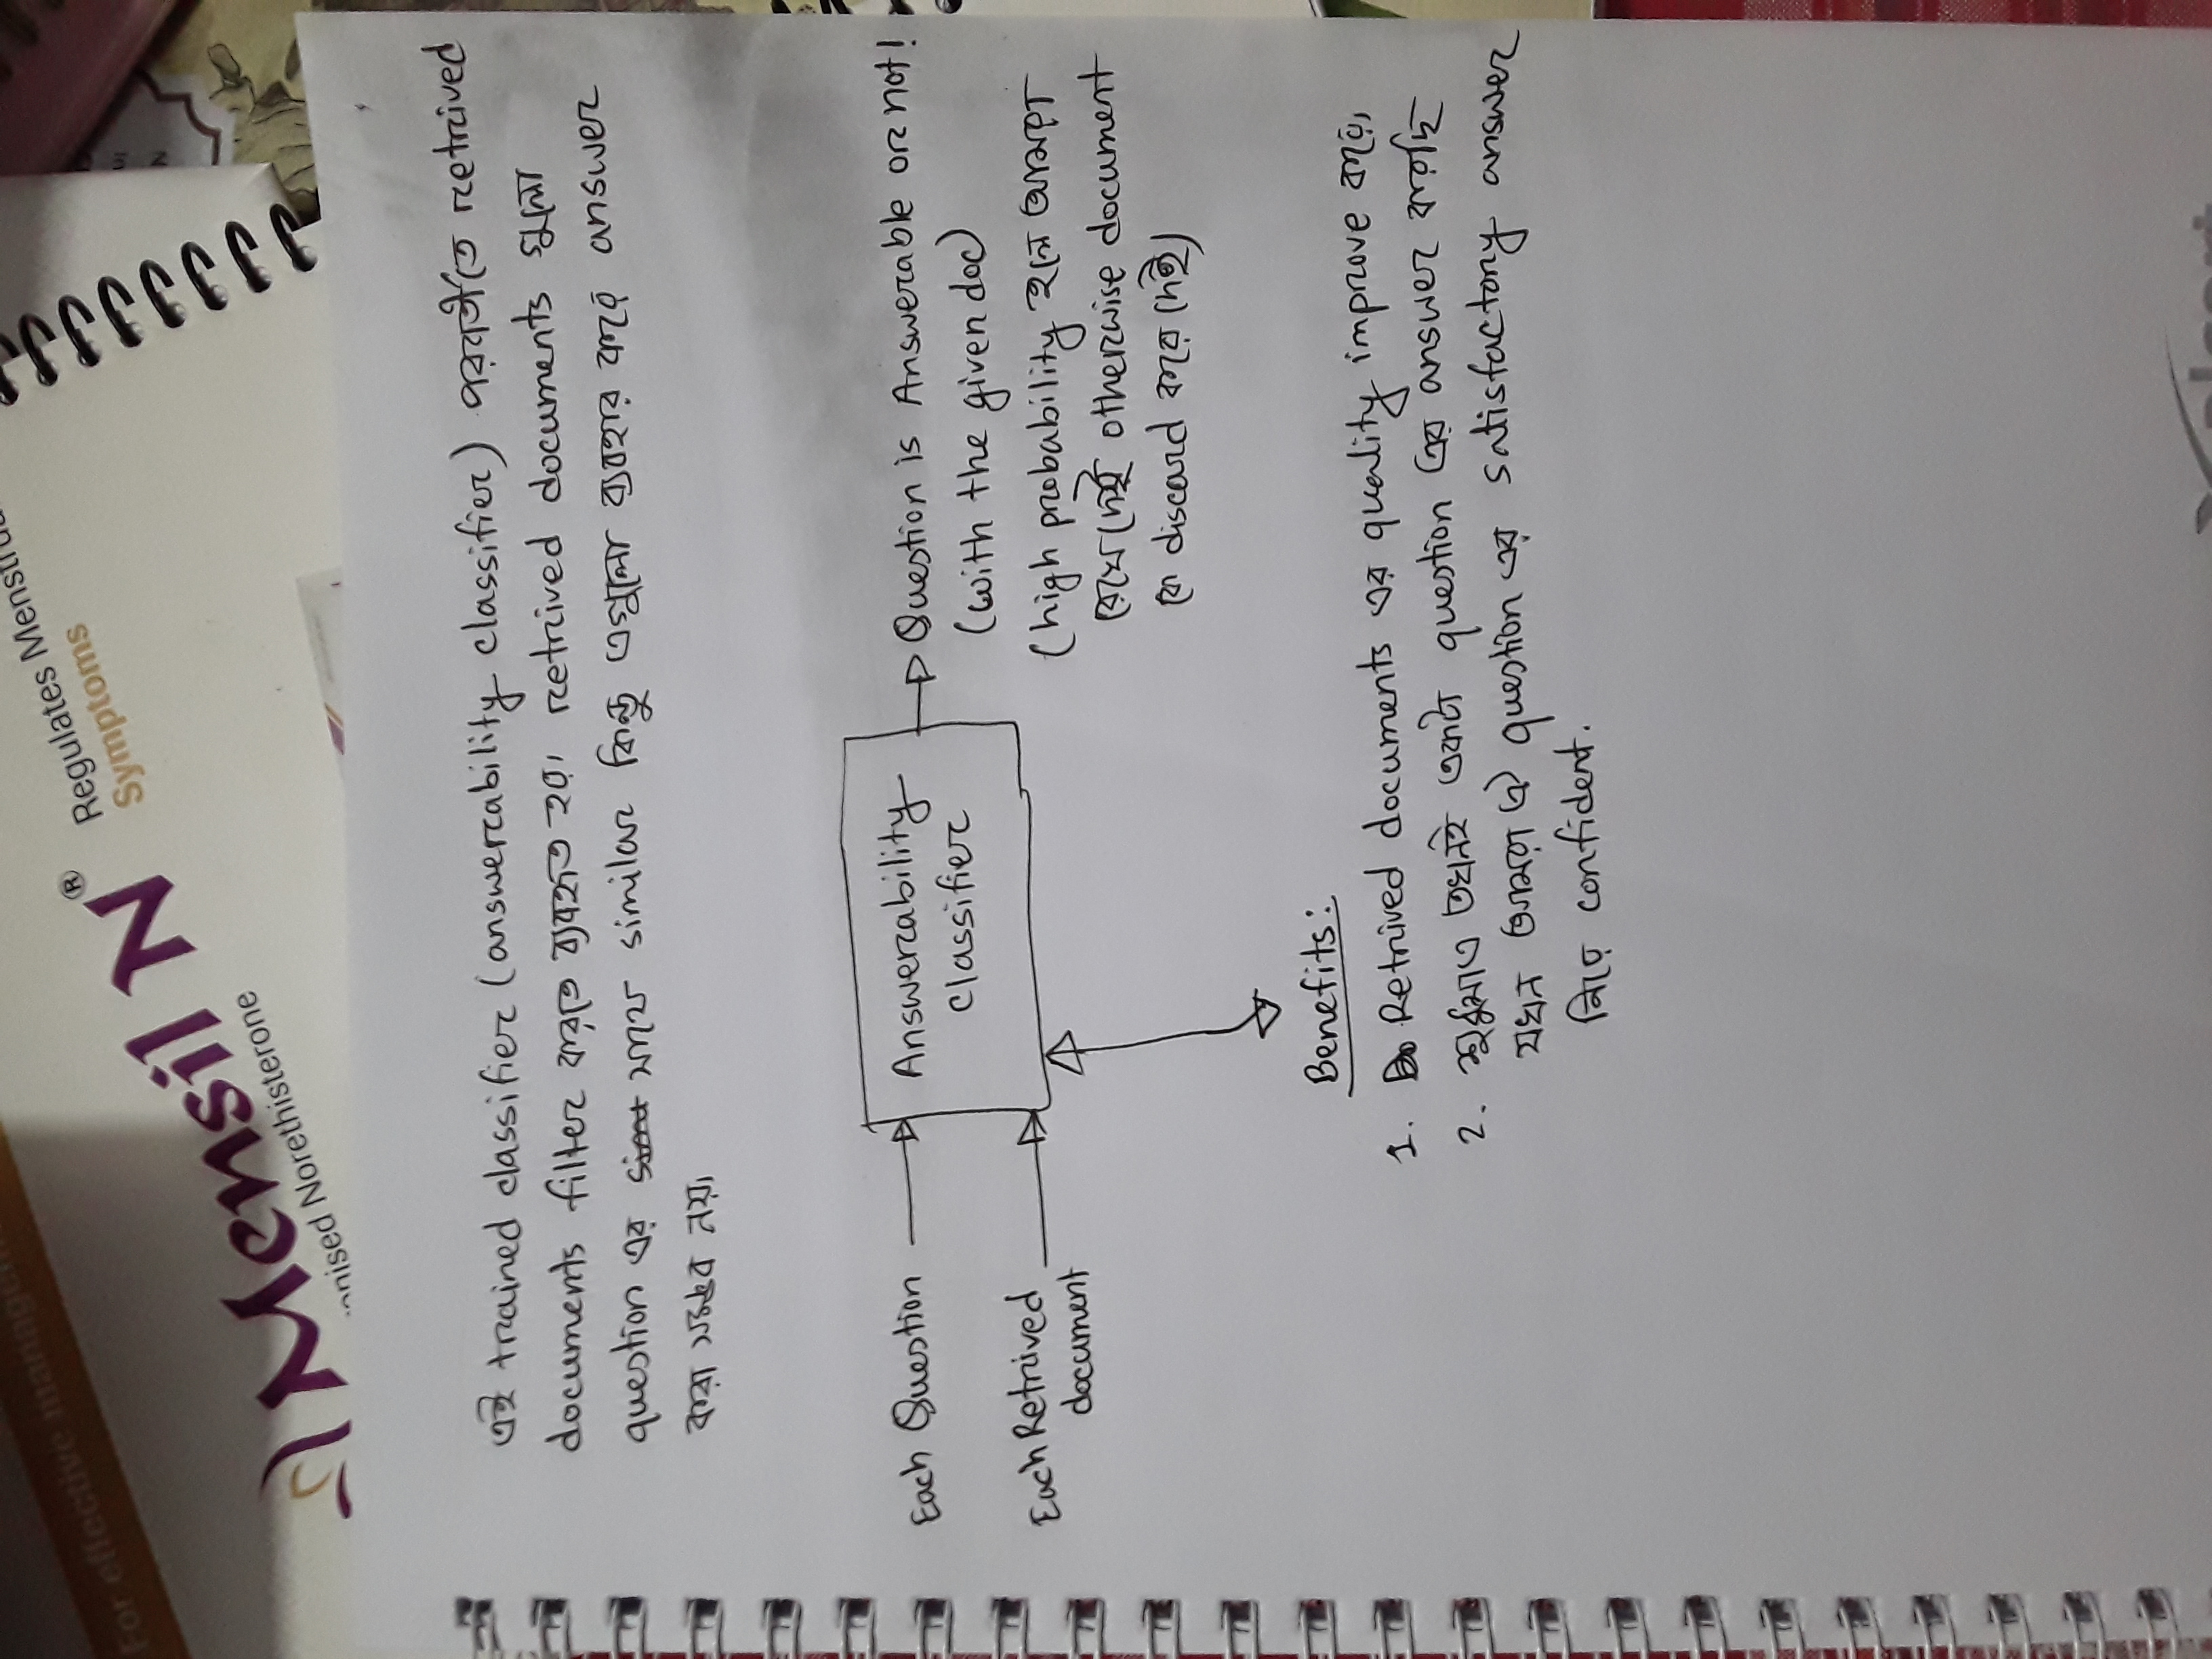 For effective managem
Mensil N®
Regulates Menstrua
Symptoms
onised Norethisterone
এই trained classifier (answerability classifier) পরবর্তীতে retrived
documents filter করতে ব্যবহৃত হয়। retrived documents গুলো
question এর সাথে similar কিন্তু এগুলো ব্যবহার করে answer
করা সম্ভব নয়।
Each Question
Answerability
classifier
Question is Answerable or not!
(with the given doc)
Each Retrived
document
(high probability হলে আমরা
রেখে দেই otherwise document
কে discard করে দেই)
Benefits:
1. Retrived documents এর quality improve করে,
2. শুধুমাত্র তখনই একটা question এর answer করছি
যখন আমরা ঐ question এর satisfactory answer
নিয়ে confident.